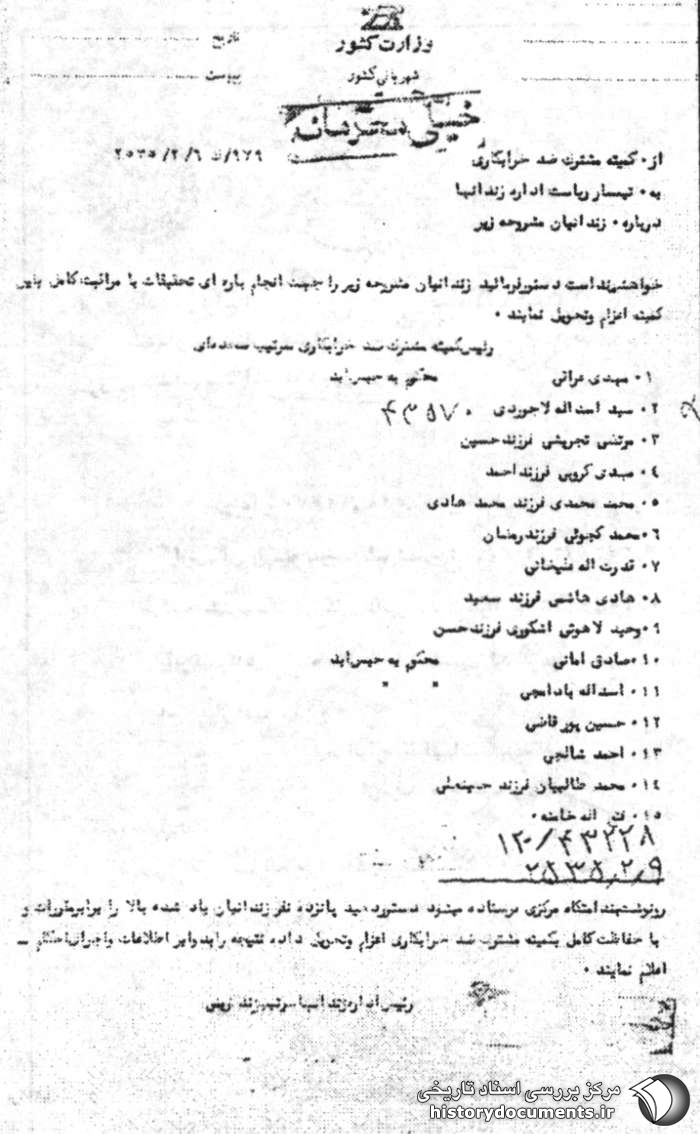 وزارت کشور
شهربانی کشور
تاریخ
پیوست
خیلی محرمانه
از ۰ کمیته مشترک ضد خرابکاری
۲۵۳۵/۲/۶
به ۰ تیمسار ریاست اداره زندانها
درباره ۰ زندانیان مشروحه زیر
خواهشمند است دستور فرمائید زندانیان مشروحه زیر را جهت انجام پاره ای تحقیقات با مراقبت کامل باین
کمیته اعزام وتحویل نمایند ۰
رئیس کمیته مشترک ضد خرابکاری سرتیپ سجده‌ای
۱ ۰ مهدی عراقی محکوم به حبس ابد
۲ ۰ سید اسداله لاجوردی ۴۳۵۷۰
۳ ۰ مرتضی تجریشی فرزند حسین
۴ ۰ مهدی کروبی فرزند احمد
۵ ۰ محمد محمدی فرزند محمد هادی
۶ ۰ محمد کچوئی فرزند رمضان
۷ ۰ قدرت اله علیخانی
۸ ۰ هادی هاشمی فرزند سعید
۹ ۰ وحید لاهوتی اشکوری فرزند حسن
۱۰ ۰ صادق امانی محکوم به حبس ابد
۱۱ ۰ اسداله بادامچی " "
۱۲ ۰ حسین پورقاضی
۱۳ ۰ احمد شالچی
۱۴ ۰ محمد طالبیان فرزند حسینعلی
۱۵ ۰ فتح اله خامنه ۰
۱۲۰/۴۳۲۲۸
۲۵۳۵٫۲٫۹
رونوشت ندامتگاه مرکزی فرستاده میشود دستور دهید پانزده نفر زندانیان یاد شده بالا را برابر مقررات و
با حفاظت کامل بکمیته مشترک ضد خرابکاری اعزام وتحویل داده نتیجه را بدوایر اطلاعات واجرای احکام
اعلام نمایند ۰
رئیس اداره زندانها سرتیپ زندی‌پور
مرکز بررسی اسناد تاریخی
historydocuments.ir